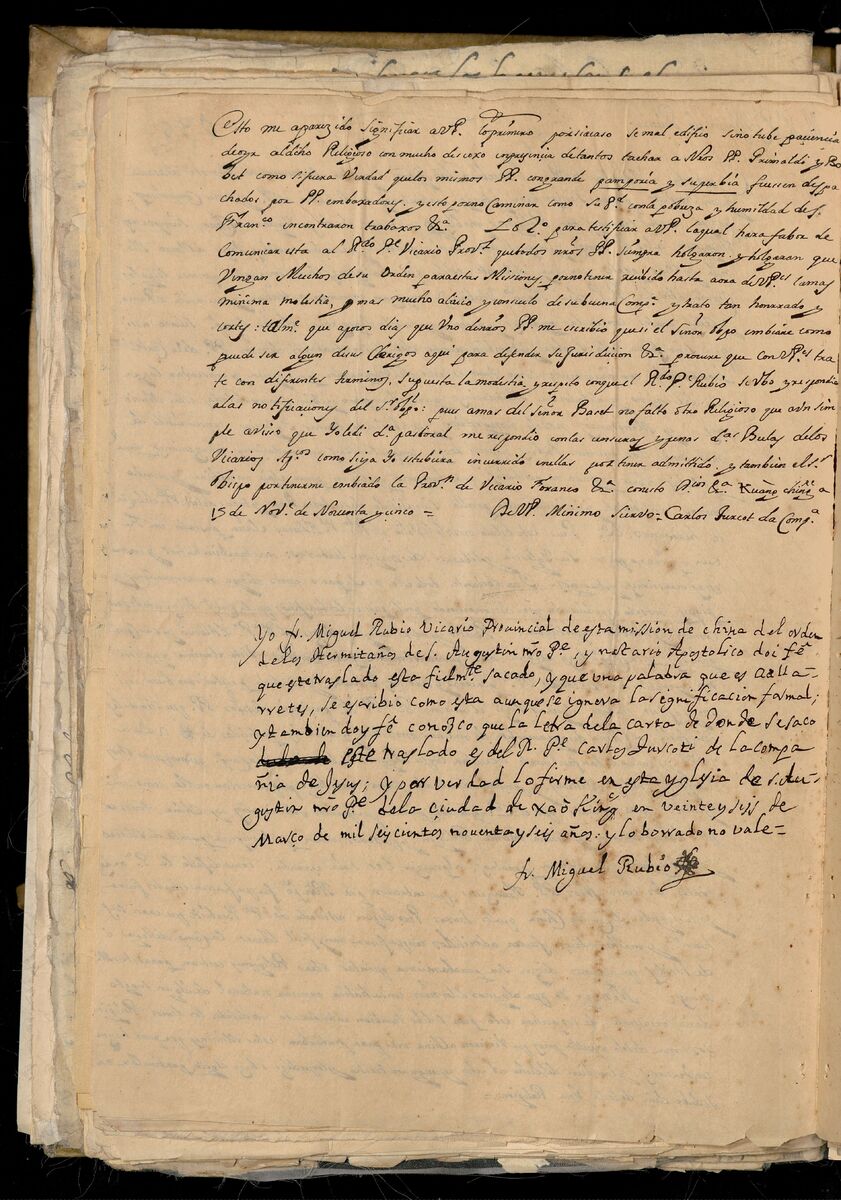 Esto me aparezido significar a VP. Lo primero por si acaso se mal edifio si no tube paciencia
de oyr al dcho Religioso con mucho descoro en presencia de tantos tachar a Nros PP. Grimaldi y Bo
bet como si fuera Verdad que los mismos PP. con grande pamporia y superbia fuessen despa
chados por PP. embaxadores, y esto por no Caminar como su Pd con la pobreza y humildad de S.
Franco incontraron trabaxos &a Lo 2o para testificar a VP. la qual hara fabor de
Comunicar esta al Rdo Pe Vicario Provl que todos nros PP. siempre holgaron, y holgaran que
Vengan Muchos de su Orden para estas Missiones, por no tener recibido hasta aora de VPes la mas
minima molestia, mas mucho alivio y consuelo de su buena Compa y trato tan honrrado y
cortes: talme que a pocos dias que Uno de nros PP. me escribio que si el Señor Obpo embiare como
puede ser algun de sus Clerigos aqui para defender su Jurisdicion &a procure que con VPes tra
te con diferentes terminos, supuesta la modestia y respeto con que el Rdo Pe Rubio se ubo y respondio
a las notificaciones del Sr Obpo: pues a mas del Señor Baset no falto otro Religioso que a un sim
ple aviso que Yo le di da pastoral me respondio con las censuras y penas das Bulas de los
Vicarios Apcos como si ya Yo estubiera incurrido en ellas por tener admitido, y tambien el Sr
Obispo por tenerme embiado la Provn de Vicario Foraneo &a con esto Dios &a Xuáng ching a
15 de Nove de Noventa y cinco = De VP. Minimo Siervo - Carlos Turcot da Compa
Yo fr. Miguel Rubio Vicario Provincial de esta mission de china del orden
de los Hermitaños de S. Augustin nro Pe, y notario Apostolico doi fê
que este traslado esta fielmte sacado, y que una palabra que es
se escribio como esta aunque se ignora la significacion formal;
y tambien doy fê conosco que la letra de la carta de donde se saco
este traslado es del R. Pe Carlos Turcoti de la compa
ñia de Jesus; y por verdad lo firme en esta yglesia de S. Au-
gustin nro Pe de la ciudad de Xaô King en veinte y seis de
Março de mil seiscientos noventa y seis años: y lo borrado no vale-
fr. Miguel Rubio